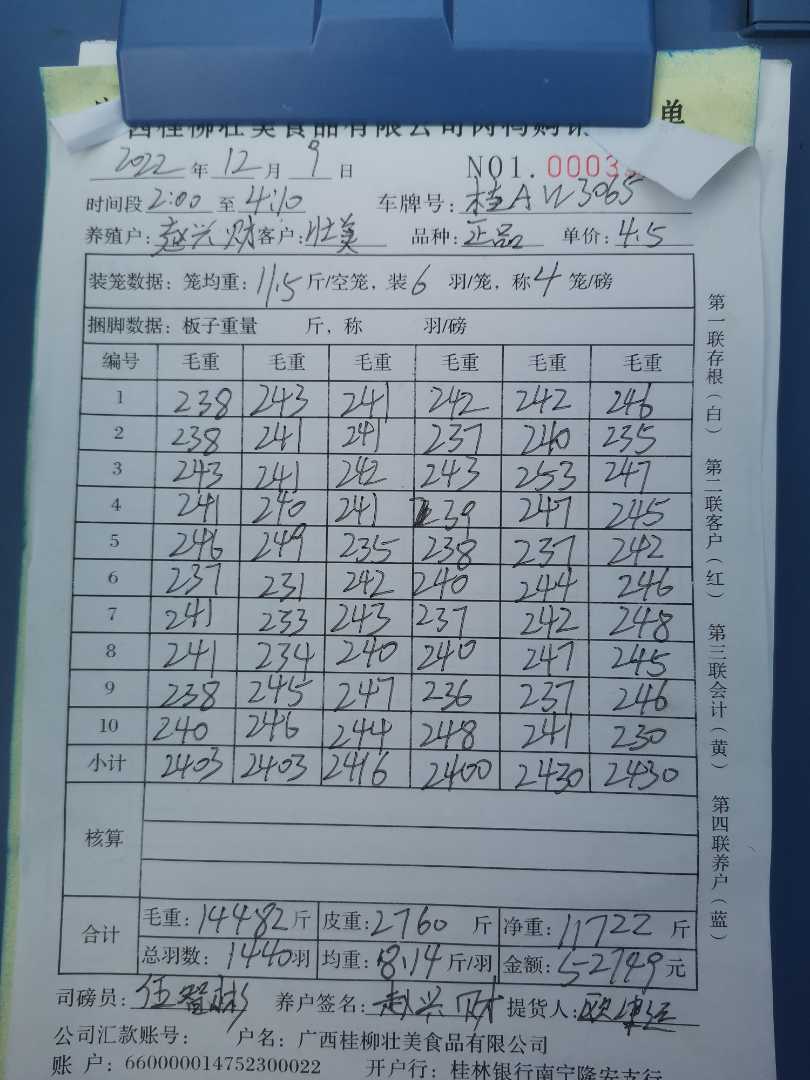 西桂柳壮美食品有限公司肉鸭购 单
2022 年 12 月 9 日 NO1.0003
时间段 2:00 至 4:10 车牌号: 桂AW3065
养殖户: 赵兴财 客户: 壮美 品种: 正品 单价: 4.5
装笼数据: 笼均重: 11.5 斤/空笼, 装 6 羽/笼, 称 4 笼/磅
捆脚数据: 板子重量 斤, 称 羽/磅
编号 毛重 毛重 毛重 毛重 毛重 毛重
1 238 243 241 242 242 246
2 238 241 241 237 240 235
3 243 241 242 243 253 247
4 241 240 241 239 247 245
5 246 249 235 238 237 242
6 237 231 242 240 244 246
7 241 233 243 237 242 248
8 241 234 240 240 247 245
9 238 245 247 236 237 246
10 240 246 244 248 241 230
小计 2403 2403 2416 2400 2430 2430
核算
合计 毛重: 14482 斤 皮重: 2760 斤 净重: 11722 斤
总羽数: 1440 羽 均重: 8.14 斤/羽 金额: 52749 元
司磅员: 伍智彬 养户签名: 赵兴财 提货人:
公司汇款账号: 户名: 广西桂柳壮美食品有限公司
账 户: 660000014752300022 开户行: 桂林银行南宁隆安支行
第一联存根(白) 第二联客户(红) 第三联会计(黄) 第四联养户(蓝)